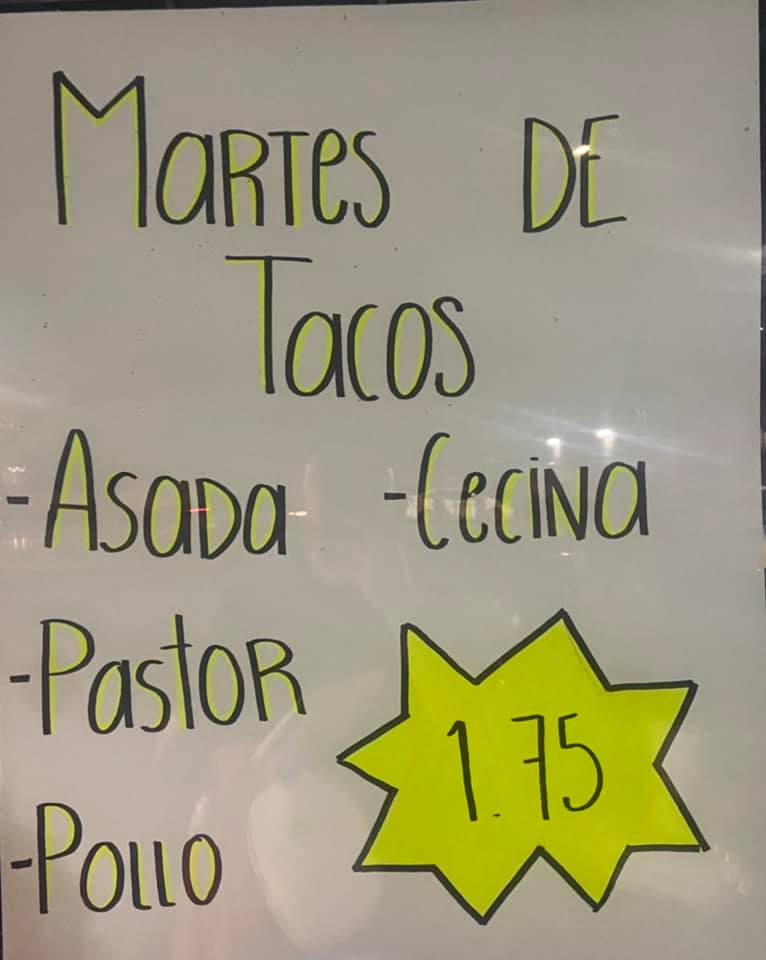 Martes DE
Tacos
-Asada -Cecina
-Pastor
1.75
-Pollo